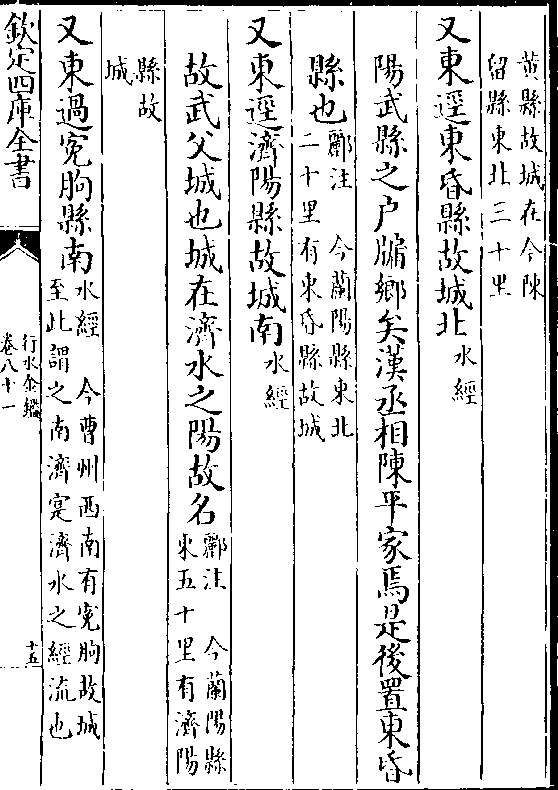 黄縣故城在今陳
留縣東北三十里
又東逕東昏縣故城北水經
陽武縣之户牖鄉矣漢丞相陳平家焉是後置東昏
縣也酈注　今蘭陽縣東北
二十里有東昏縣故城
又東逕濟陽縣故城南水經
故武父城也城在濟水之陽故名酈注　今蘭陽縣
東五十里有濟陽
縣故
城
又東過寃朐縣南水經　今曹州西南有寃朐故城
至此謂之南濟寔濟水之經流也
欽定四庫全書
行水金鑑
卷八十一
十五